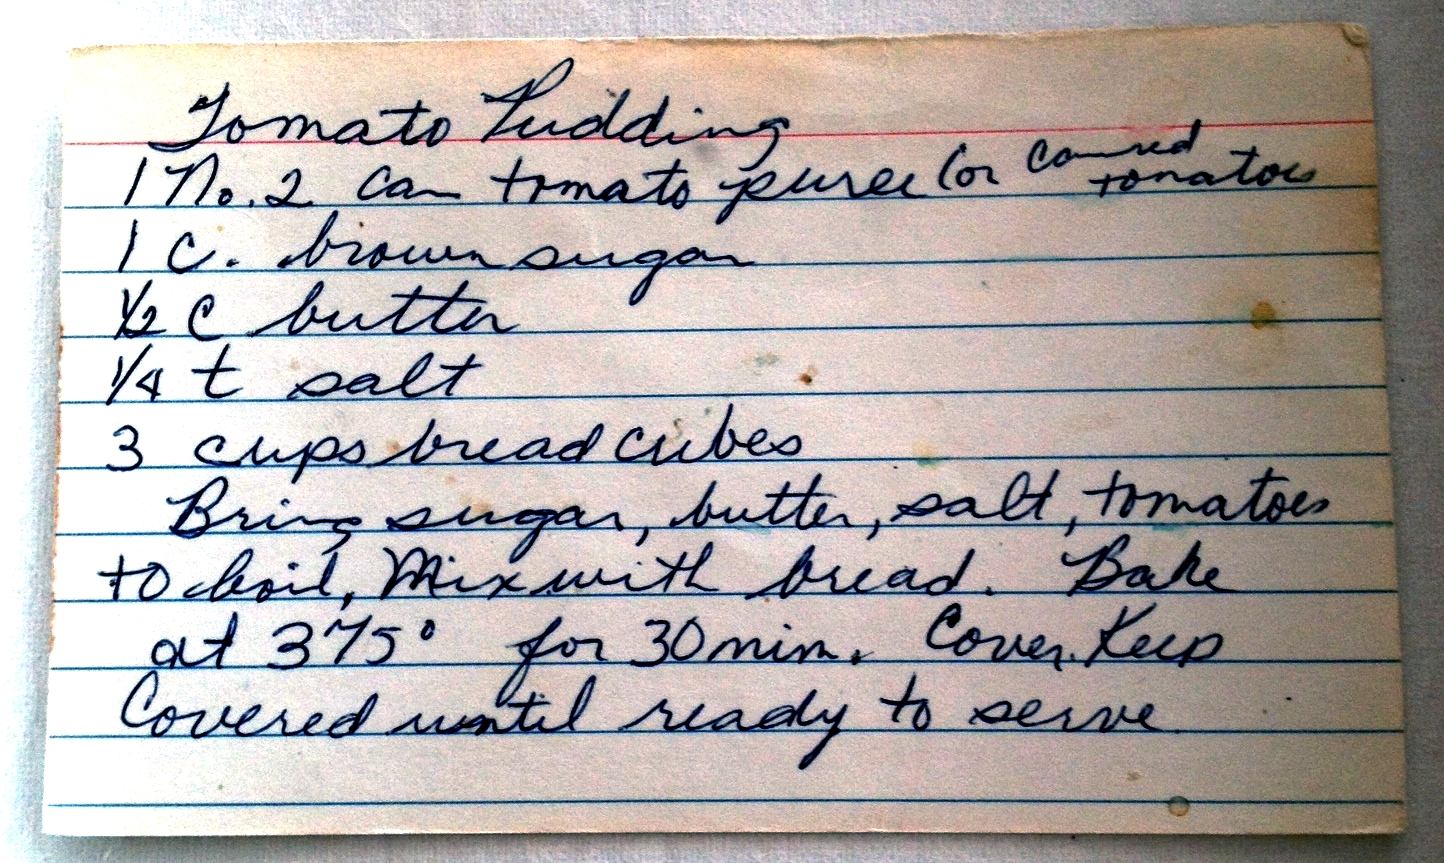 Tomato Pudding
1 No. 2 can tomato puree (or canned tomatoes
1 c. brown sugar
1/2 c butter
1/4 t salt
3 cups bread cubes
Bring sugar, butter, salt, tomatoes
to boil, Mix with bread. Bake
at 375° for 30 min. Cover. Keep
Covered until ready to serve